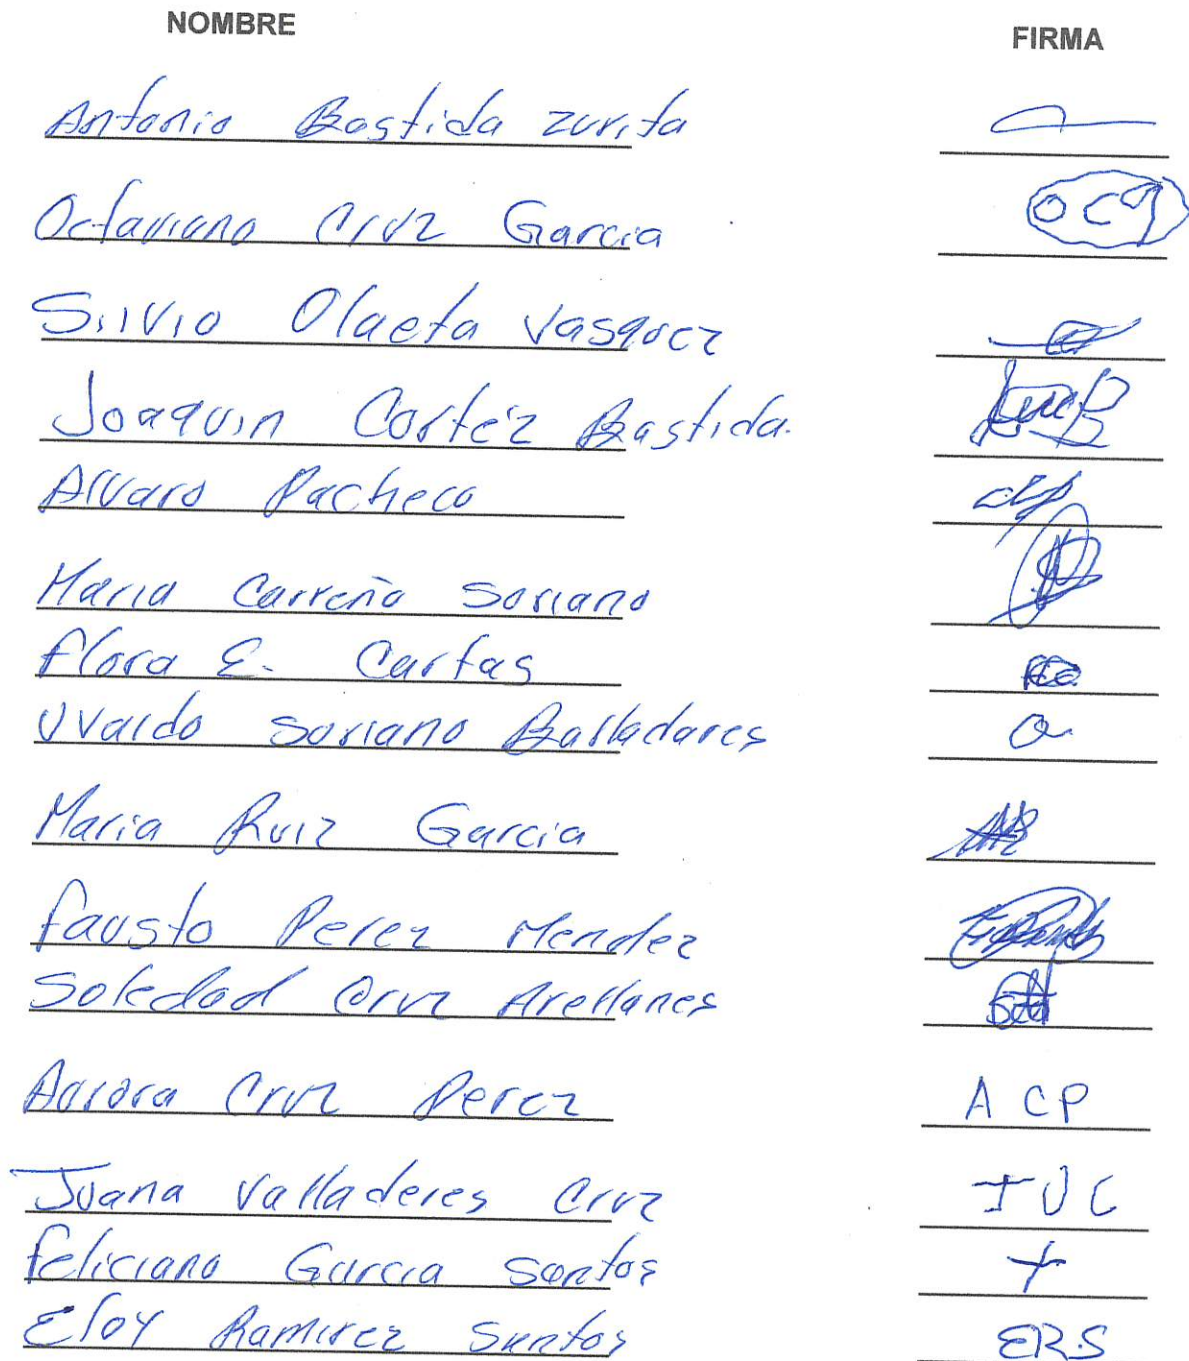 NOMBRE FIRMA
Antonio Bastida Zurita
Octaviano Cruz Garcia OCg
Silvio Olaeta Vasquez
Joaquin Cortéz Bastida.
Alvaro Pacheco
Maria Carreño Soriano
Flora E. Cartas
Uvaldo Soriano Balladares
Maria Ruiz Garcia
Fausto Perez Mendez
Soledad Cruz Arellanes
Aurora Cruz Perez A C P
Juana Valladeres Cruz J V C
Feliciano Garcia Santos +
Eloy Ramirez Santos E.R.S